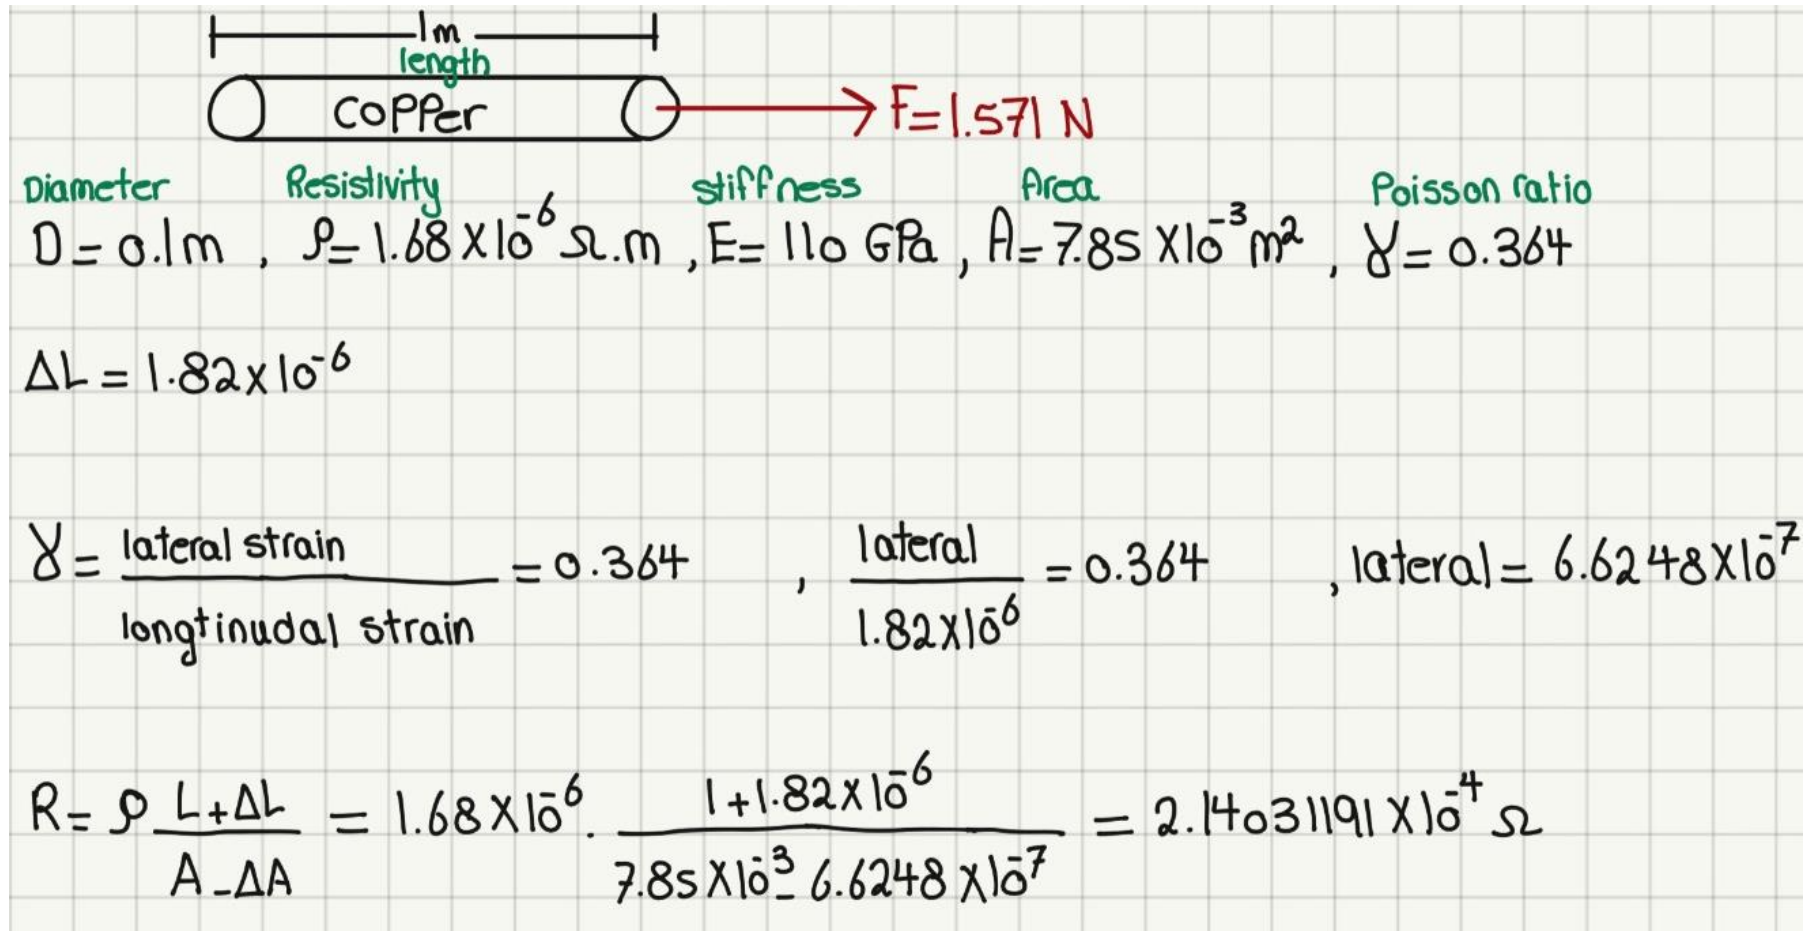 1m
length
copper
F=1.571 N
Diameter Resistivity stiffness Area Poisson ratio
D=0.1m , ρ=1.68X10⁻⁶ Ω.m , E=110 GPa , A=7.85X10⁻³m² , γ=0.364
ΔL=1.82x10⁻⁶
γ= lateral strain / longtinudal strain =0.364 , lateral / 1.82X10⁻⁶ =0.364 , lateral= 6.6248X10⁻⁷
R= ρ L+ΔL / A-ΔA = 1.68X10⁻⁶. 1+1.82X10⁻⁶ / 7.85X10⁻³-6.6248X10⁻⁷ = 2.14031191X10⁻⁴ Ω